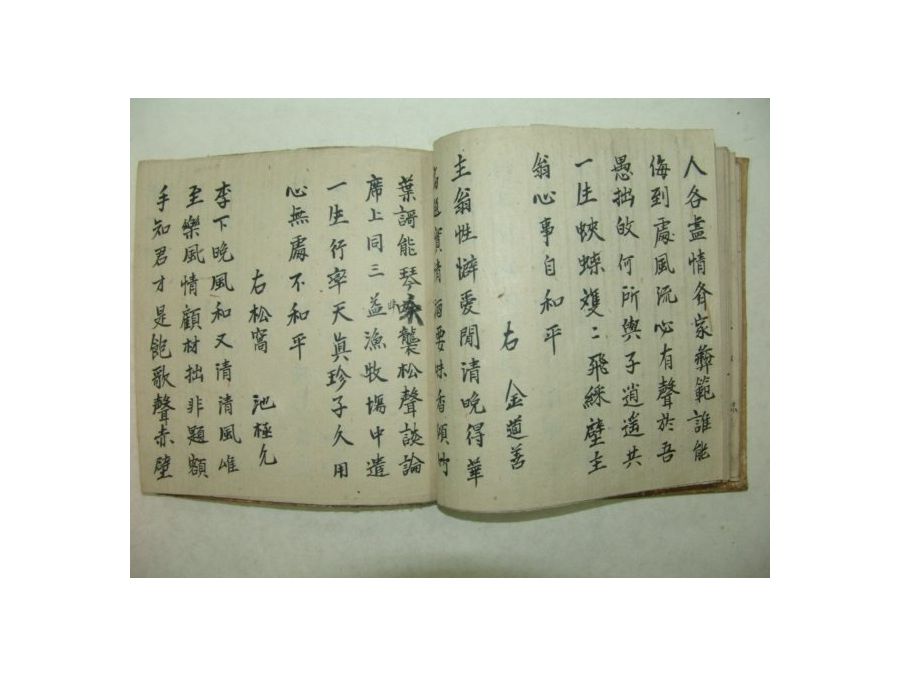 人各盡情各家彝範誰能
侮到處風流心有聲於吾
愚拙攸何所與子逍遥共
一生蛺蝶雙二飛綵壁主
翁心事自和平
右 金道善
主翁性懈愛閒清晩得華
賓情酒要味香傾竹
葉謌能琴襲松聲談論
席上同三益漁牧塲中遣
一生行率天眞珍子久用
心無處不和平
右松窩 池極允
李下晩風和又清清風雄
至樂風情顧材拙非題額
手知君才是飽歌聲赤壁